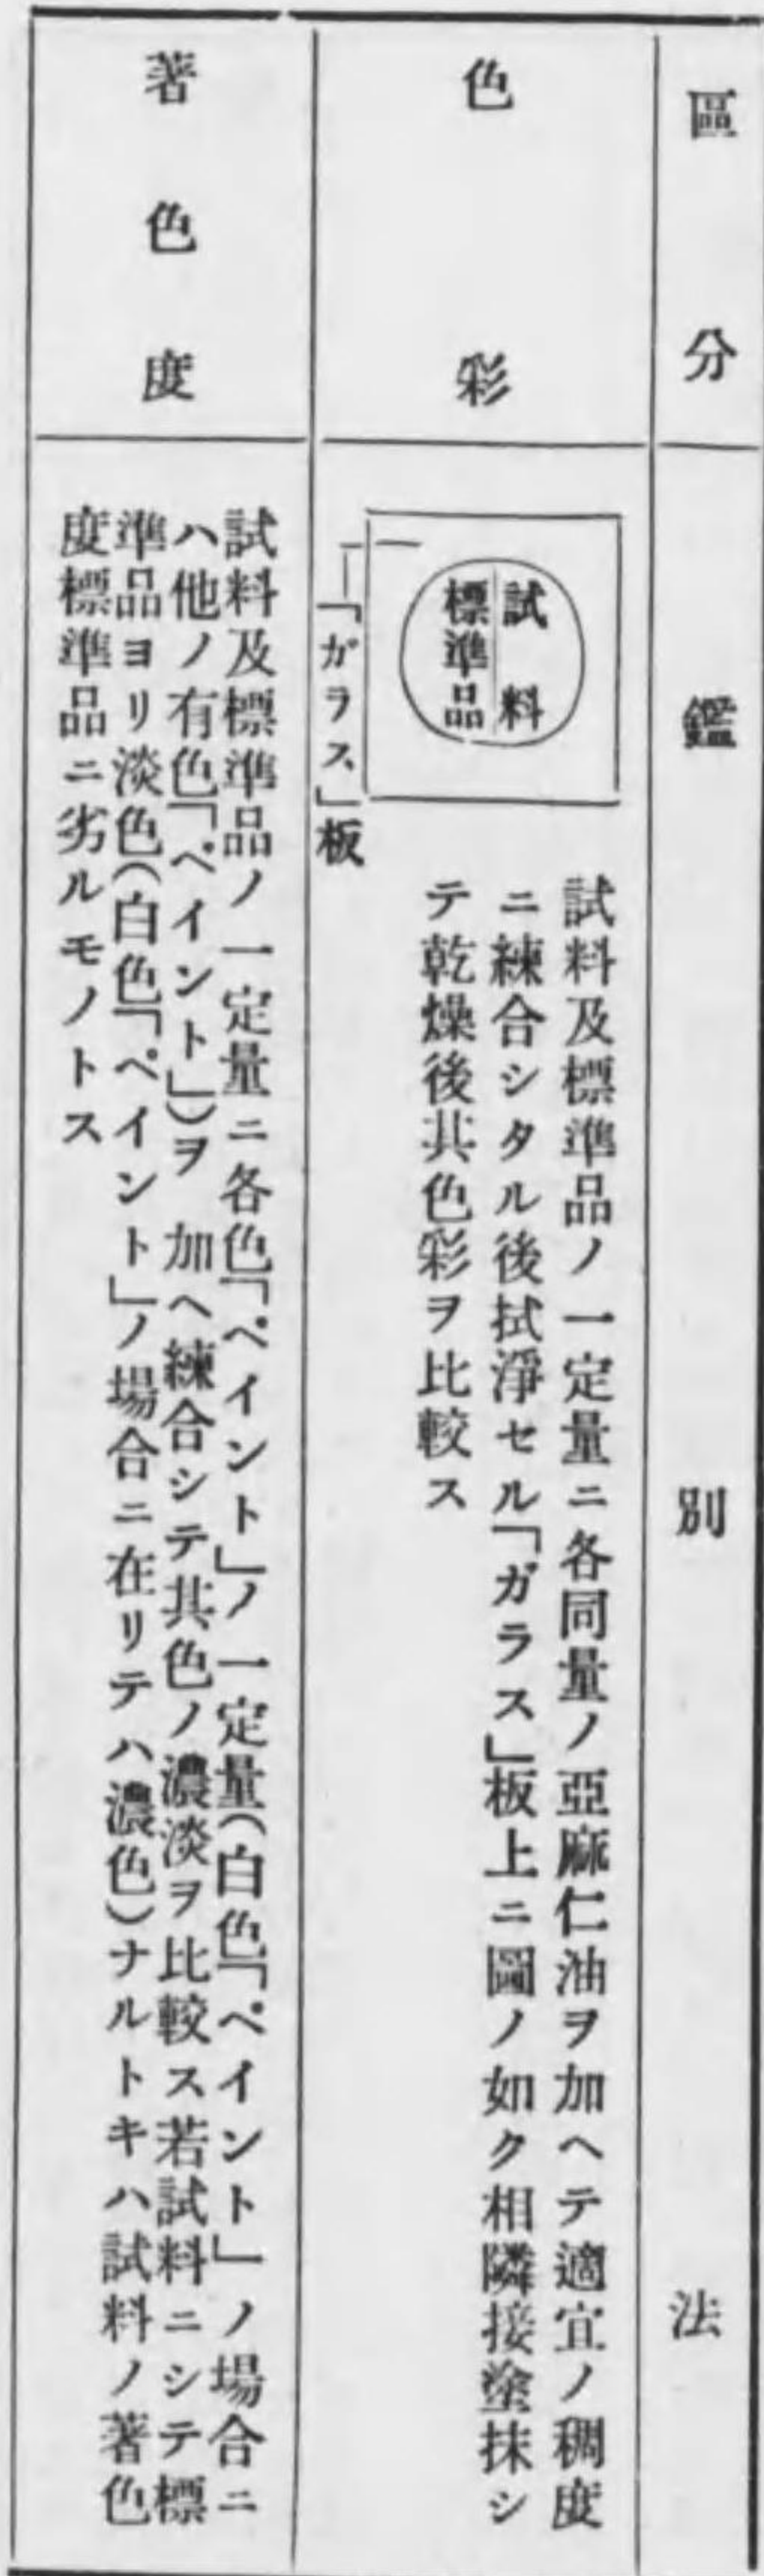 區分
鑑別法
色彩
試料
標準品
「ガラス」板
試料及標準品ノ一定量ニ各同量ノ亞麻仁油ヲ加ヘテ適宜ノ稠度
ニ練合シタル後拭淨セル「ガラス」板上ニ圖ノ如ク相隣接塗抹シ
テ乾燥後其色彩ヲ比較ス
著色度
試料及標準品ノ一定量ニ各色「ペイント」ノ一定量(白色「ペイント」ノ場合ニ
ハ他ノ有色「ペイント」)ヲ加ヘ練合シテ其色ノ濃淡ヲ比較ス若試料ニシテ標
準品ヨリ淡色(白色「ペイント」ノ場合ニ在リテハ濃色)ナルトキハ試料ノ著色
度標準品ニ劣ルモノトス